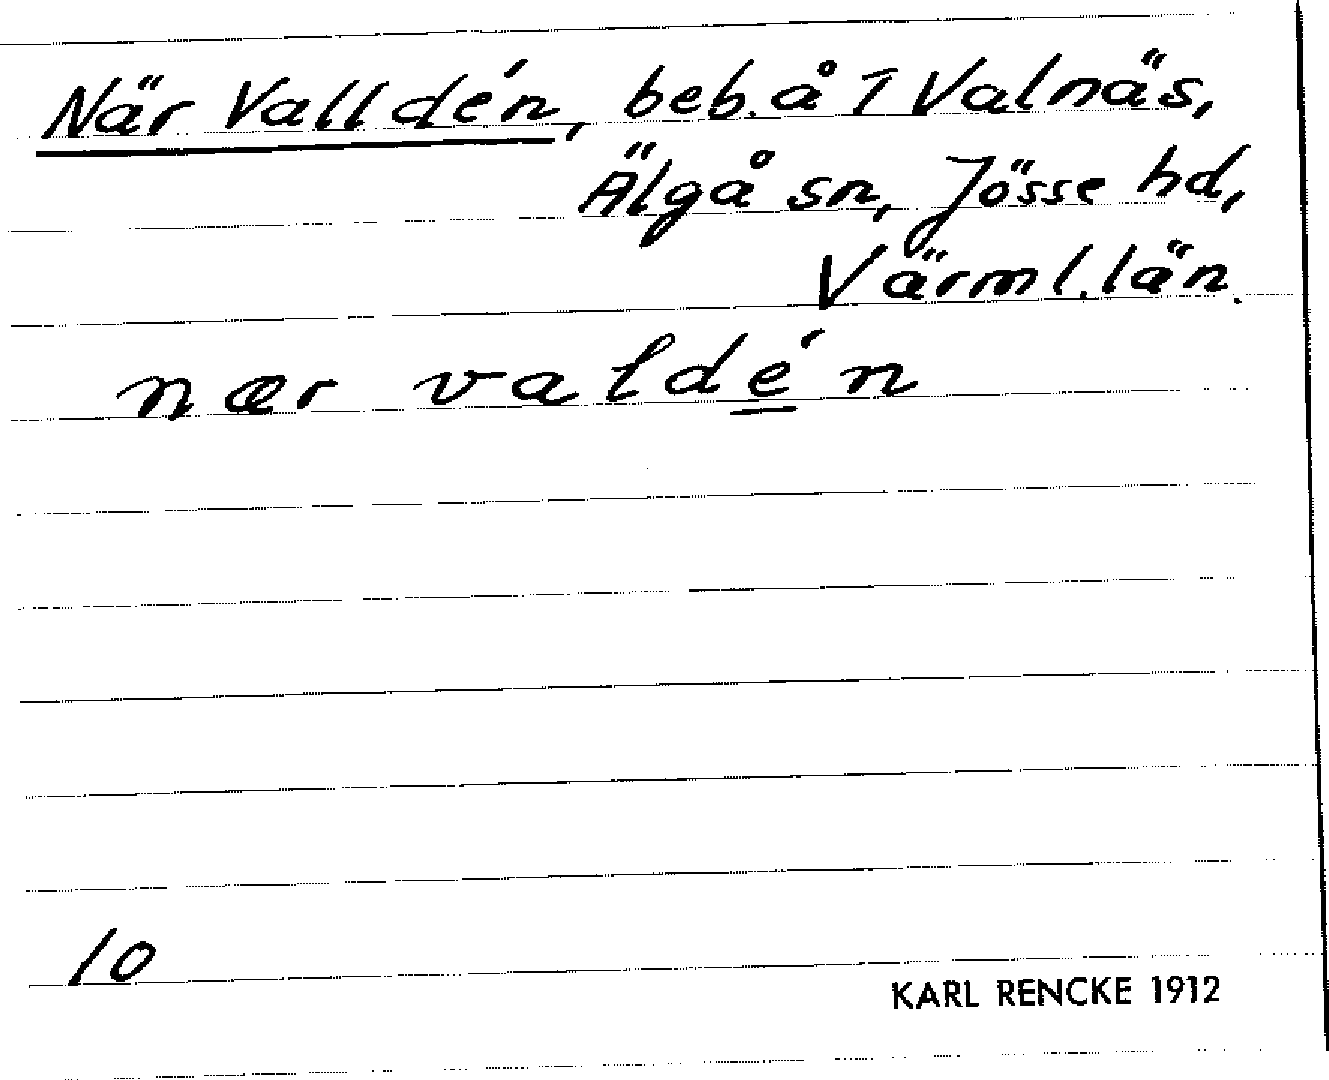 När Valldén, beb. å I Valnäs,
Älgå sn, Jösse hd,
Värml. län.
nær valdén
10
KARL RENCKE 1912